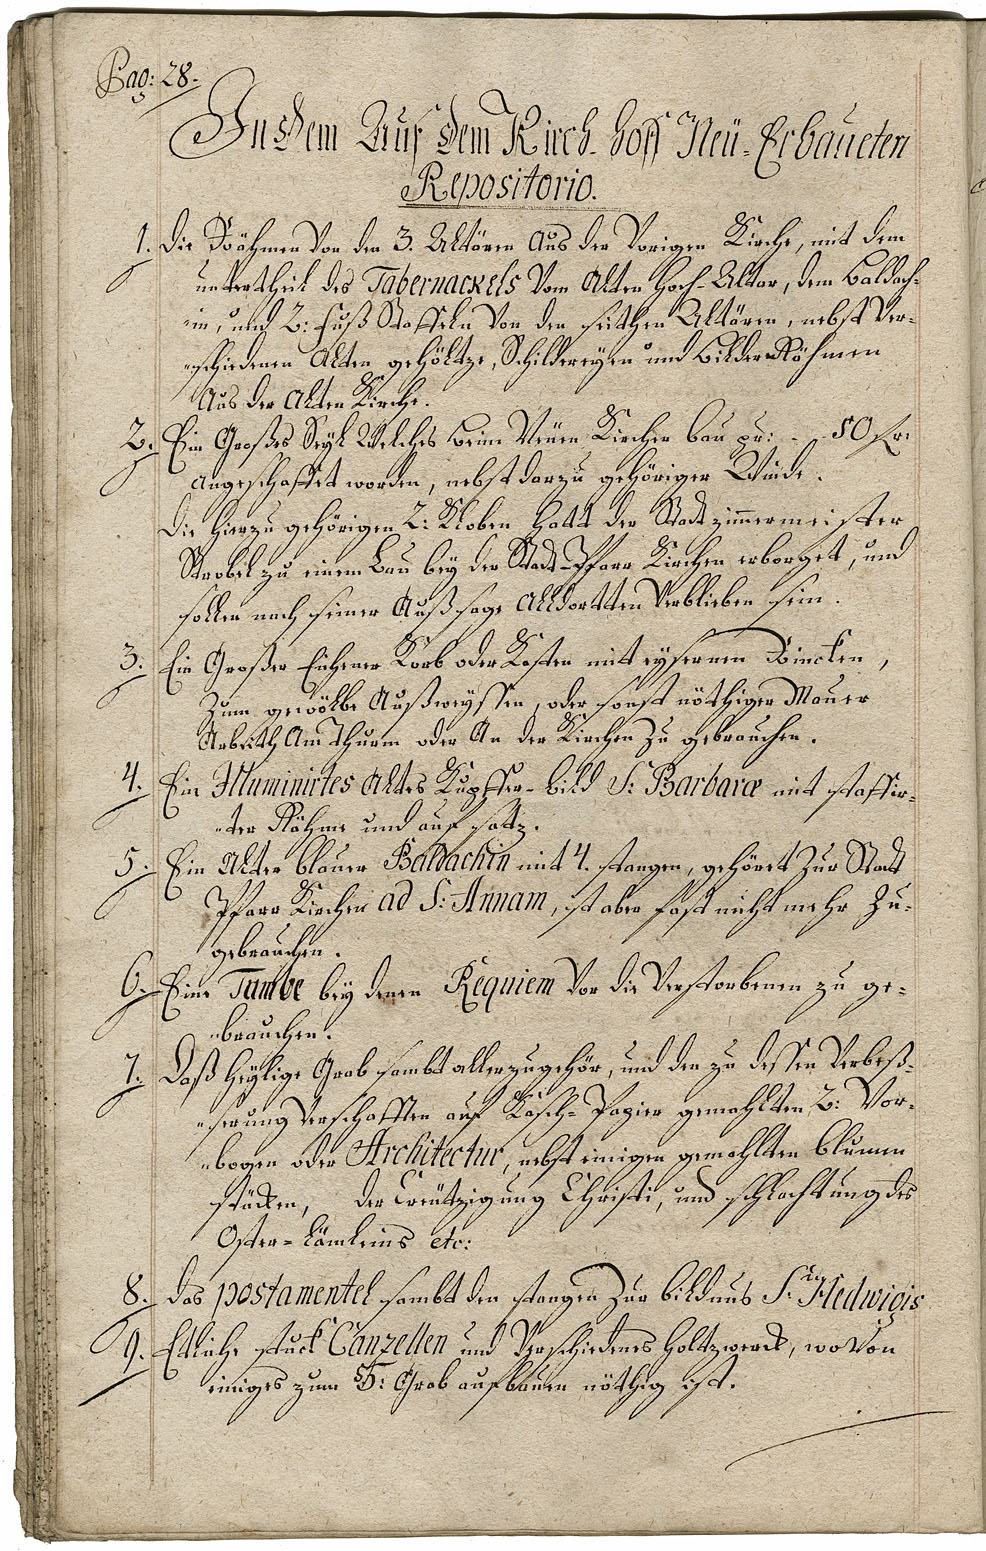 Pag: 28.
In dem Auf dem Kirch-hoff Neü-Erbaueten
Repositorio.
1. Die Rähmen von den 3. Altären Aus der Vorigen Kirche, mit dem
untertheil des Tabernackels Vom Alten Hoch-Altar, dem Baldach-
in, und 2: Fuß Staffeln Von den seithen Altären, nebst Ver-
schiedenen Alten gehöltze, Schildereyen und Bilder Rähmen
Aus der Alten Kirche.
2. Ein Großes Seyl Welches beim Neüen Kirchen bau pr: - - 50 fr:
Angeschaffet worden, nebst darzu gehöriger Winde.
Die hierzu gehörigen 2: Kloben hatt der Stadt zimmermeister
Strobel zu einem Bau bey der Stadt-Pfarr Kirchen erborget, und
sollen nach seiner Außsage Alldortten Verblieben sein.
3. Ein Großer Eichener Korb oder Kasten mit eysernen Zincken,
Zum gewölbe Außweyssen, oder sonst nöthiger Mauer
Arbeith Am Thurm oder An der Kirchen zu gebrauchen.
4. Ein Illuminirtes Altes Kupffer-bild S: Barbaræ mit staffir-
ter Rähme und auf satz.
5. Ein Alter blauer Baldachin mit 4. stangen, gehöret Zur Stadt
Pfarr Kirchen ad S: Annam, ist aber fast nicht mehr Zu-
gebrauchen.
6. Eine Tumbe bey denen Requiem Vor die Verstorbenen zu ge-
brauchen.
7. Daß Heylige Grab sambt aller zugehör, und den zu dessen Verbeß-
serung Verschafften auf Kasch-Papier gemahlten 2: Vor-
bogen oder Architectur, nebst einigen gemahlten blumen
stücken, der Creützigung Christi, und schlachtung des
Oster-Lämleins etc:
8. Das postamentel sambt den stangen Zur bildnus S: Hedwigis
9. Etliche stuck Canzellen und Verschiedenes holtzwerck, wo von
einiges zum H: Grab aufbauen nöthig ist.